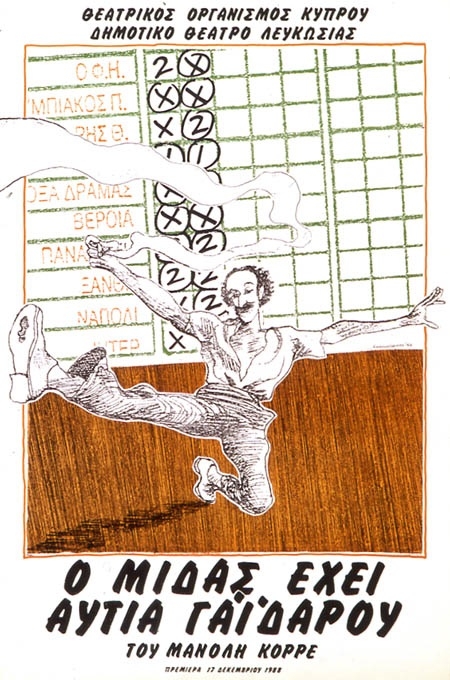 ΘΕΑΤΡΙΚΟΣ ΟΡΓΑΝΙΣΜΟΣ ΚΥΠΡΟΥ
ΔΗΜΟΤΙΚΟ ΘΕΑΤΡΟ ΛΕΥΚΩΣΙΑΣ
Ο.Φ.Η. 2 X
ΜΠΙΑΚΟΣ Π. X X
ΡΗΣ Θ. X 2
1 1
ΟΞΑ ΔΡΑΜΑΣ X
ΒΕΡΟΙΑ X X
ΠΑΝΑ 2
ΞΑΝΘ 2 2
ΝΑΠΟΛΙ
ΝΤΕΡ X
Ο ΜΙΔΑΣ ΕΧΕΙ
ΑΥΤΙΑ ΓΑΪΔΑΡΟΥ
ΤΟΥ ΜΑΝΟΛΗ ΚΟΡΡΕ
ΠΡΕΜΙΕΡΑ 17 ΔΕΚΕΜΒΡΙΟΥ 1988